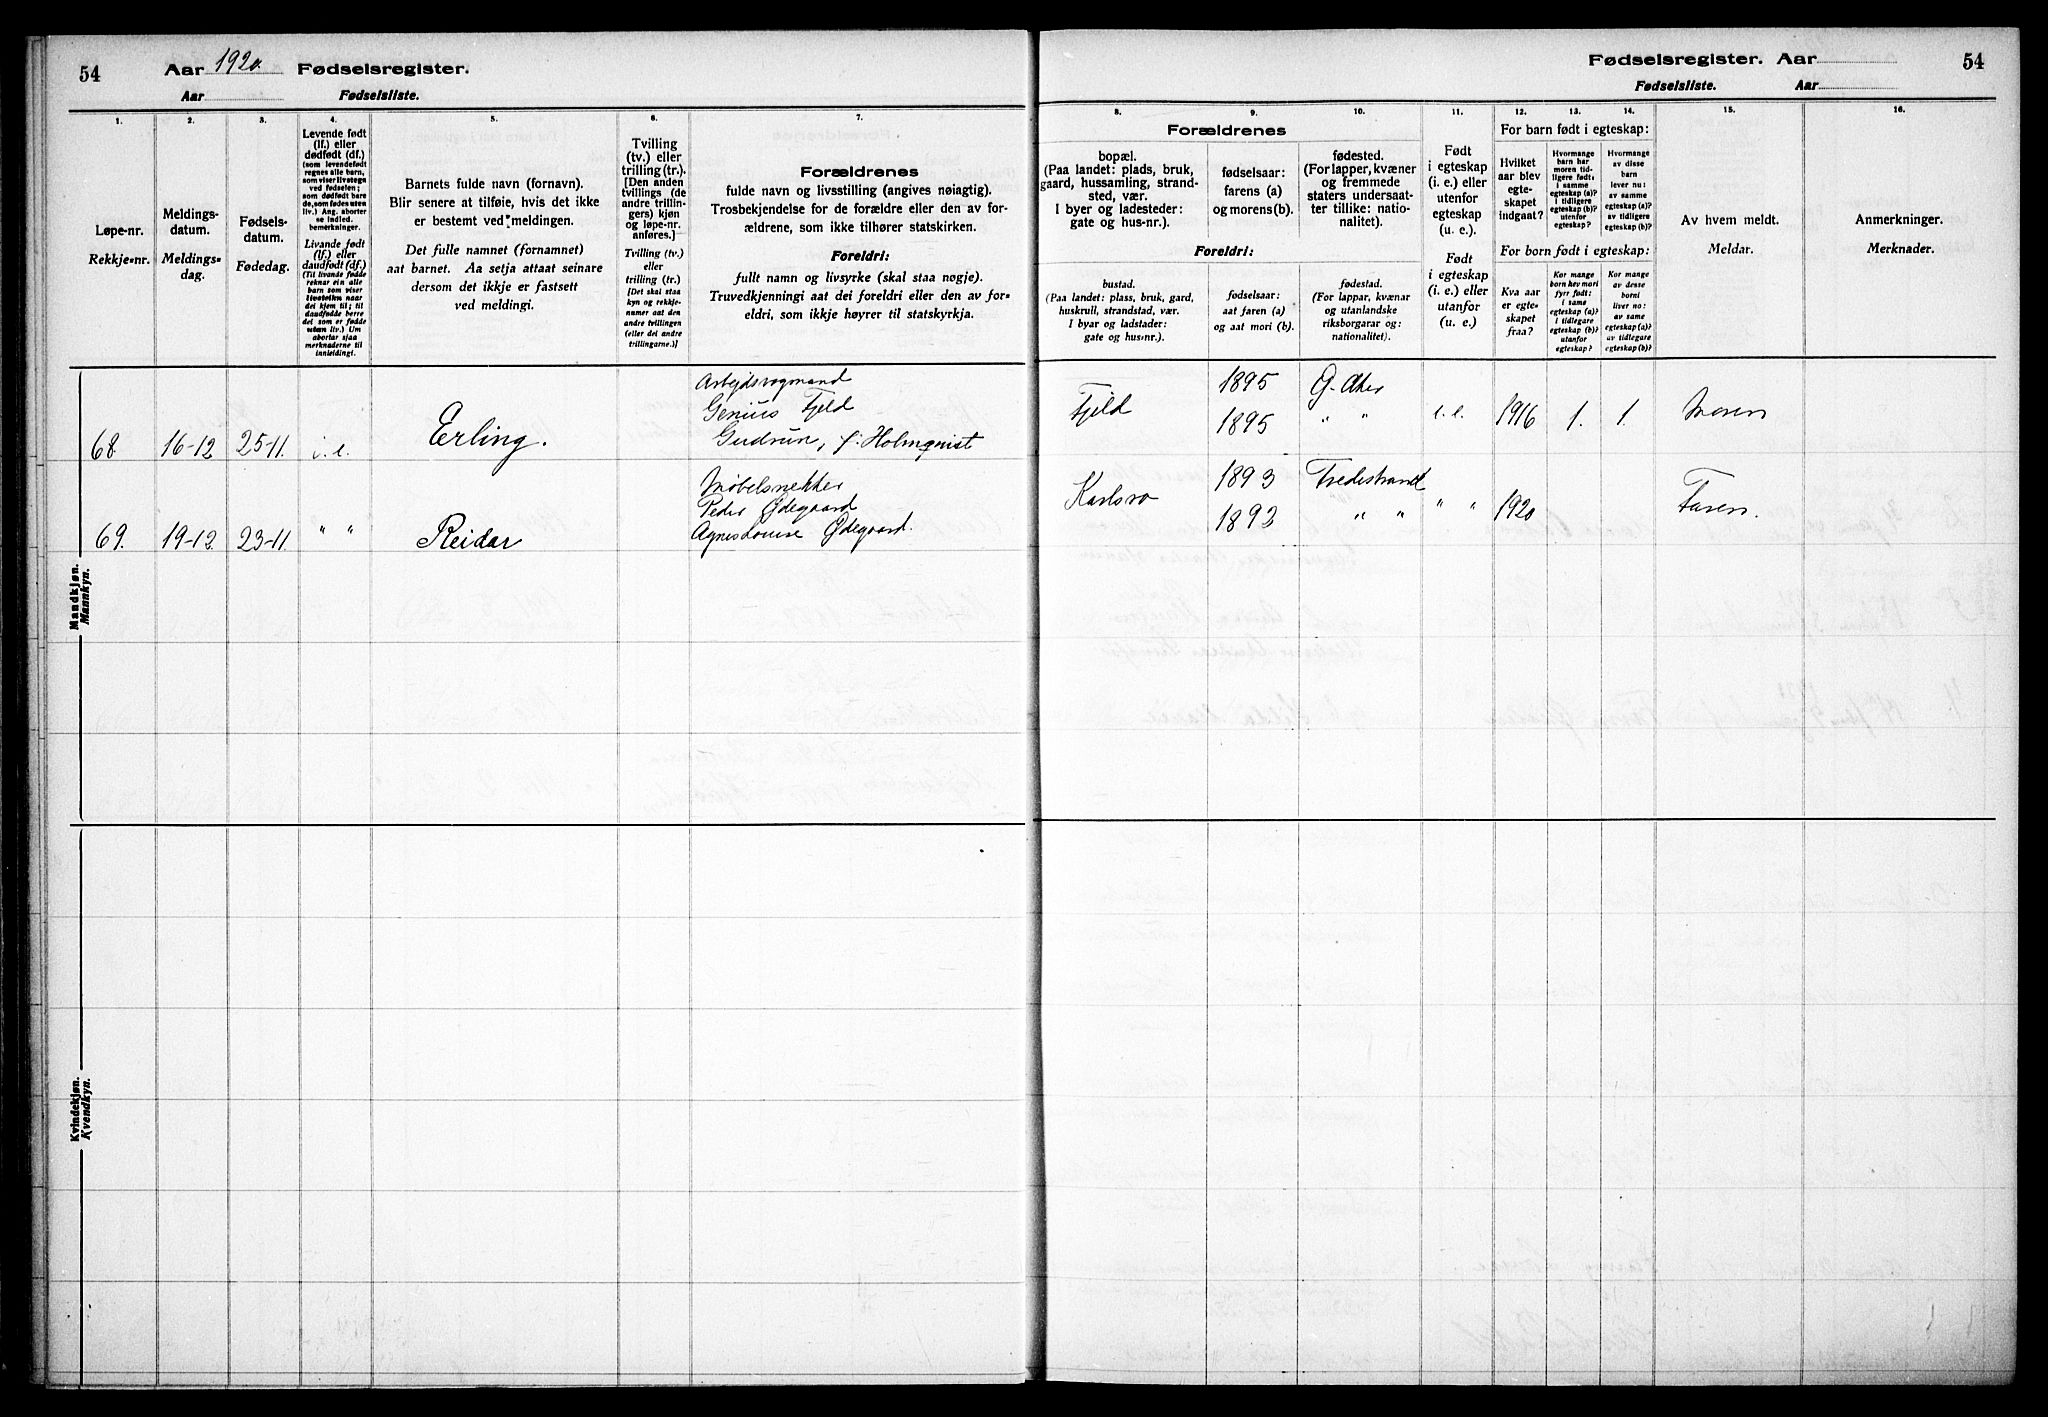 54 Aar 1920. Fødselsregister.
Aar Fødselsliste.
1.
2.
3.
4.
5.
6.
7.
Løpe-nr.
Rekkje-nr.
Meldings-
datum.
Meldings-
dag.
Fødsels-
datum.
Fødedag.
Levende født
(lf.) eller
dødfødt (df.)
(som levendefødt
regnes alle barn,
som viser livstegn
ved fødselen;
som dødfødt bar-
de, som fødes uten
liv.) Ang. aborter
se indled.
bemerkninger.
Livande født
(lf.) eller
daudfødt (df.)
(Til livande fødde
reknar ein alle
born som viser
livsteikn naar
dei kjem til; til
daudfødde berre
dei som er fødde
utan liv.) Um
abortar sjaa
merknaderne til
innleidingi.
Barnets fulde navn (fornavn).
Blir senere at tilføie, hvis det ikke
er bestemt ved meldingen.
Det fulle namnet (fornamnet)
aat barnet. Aa setja attaat seinare
dersom det ikkje er fastsett
ved meldingi.
Tvilling
(tv.) eller
trilling (tr.).
[Den anden
tvillings (de
andre trillin-
gers) kjøn
og løpe-nr.
anføres.]
Tvilling (tv.)
eller
trilling (tr.)
[Det skal staa
kyn og rekkje-
numer aat den
andre tvillingen
(eller dei andre
trillingarne.)]
Forældrenes
fulde navn og livsstilling (angives nøiagtig).
Trosbekjendelse for de forældre eller den av for-
ældrene, som ikke tilhører statskirken.
Foreldri:
fullt namn og livsyrke (skal staa nøgje).
Truvedkjenningi aat dei foreldri eller den av for-
eldri, som ikkje høyrer til statskyrkja.
Mandkjøn.
Mannkyn.
Arbejdsvogmand
Genius Fjeld
68. 16-12 25-11. i. e. Erling. Gudrun, f. Holmqvist
Møbelsnekker
Peder Ødegaard
69. 19-12 23-11. " " Reidar Agnes Louise Ødegaard.
Kvindekjøn.
Kvendkyn.
Fødselsregister. Aar 54
Fødselsliste. Aar
8.
9.
10.
11.
12.
13.
14.
15.
16.
Forældrenes
bopæl.
(Paa landet: plads, bruk,
gaard, hussamling, strand-
sted, vær.
I byer og ladesteder:
gate og hus-nr.).
fødselsaar:
farens (a)
og morens (b).
fødested.
(For lapper, kvæner
og fremmede
staters undersaat-
ter tillike: natio-
nalitet).
Foreldri:
bustad.
(Paa landet: plass, bruk, gard,
huskrull, strandstad, vær.
I byar og ladstader:
gate og hus-nr.).
fødselsaar:
aat faren (a)
og aat mori (b).
fødestad.
(For lappar, kvænar
og utanlandske
riksborgarar og:
nationalitet.).
Født
i egteskap
(i. e.) eller
utenfor
egteskap
(u. e.).
Født
i egteskap
(i. e.) eller
utanfor
(u. e.).
For barn født i egteskap:
Hvilket
aar blev
egte-
skapet
indgaat?
Hvormange
barn har
moren tid-
ligere født:
i samme
egteskap (a)?
i tidligere
egteskap (b)?
utenfor
egteskap?
Hvormange
av disse
barn
lever nu:
av samme
egteskap (a)?
av tidligere
egteskap (b)?
For born født i egteskap:
Kva aar
er egte-
skapet
fraa?
Kor mange
born hev mori
fyrr født:
i same
egteskap (a)?
i tidlegare
egteskap (b)?
utanfor
egteskap?
Kor mange
av desse
borni
liver no:
av same
egteskap (a)?
av tidlegare
egteskap (b)?
Av hvem meldt.
Meldar.
Anmerkninger.
Merknader.
Fjeld 1895 G. Aker
1895 " " i. e. 1916 1. 1. Moren
Karlsro 1893 Tvedestrand
1892 " " " " 1920 Faren.